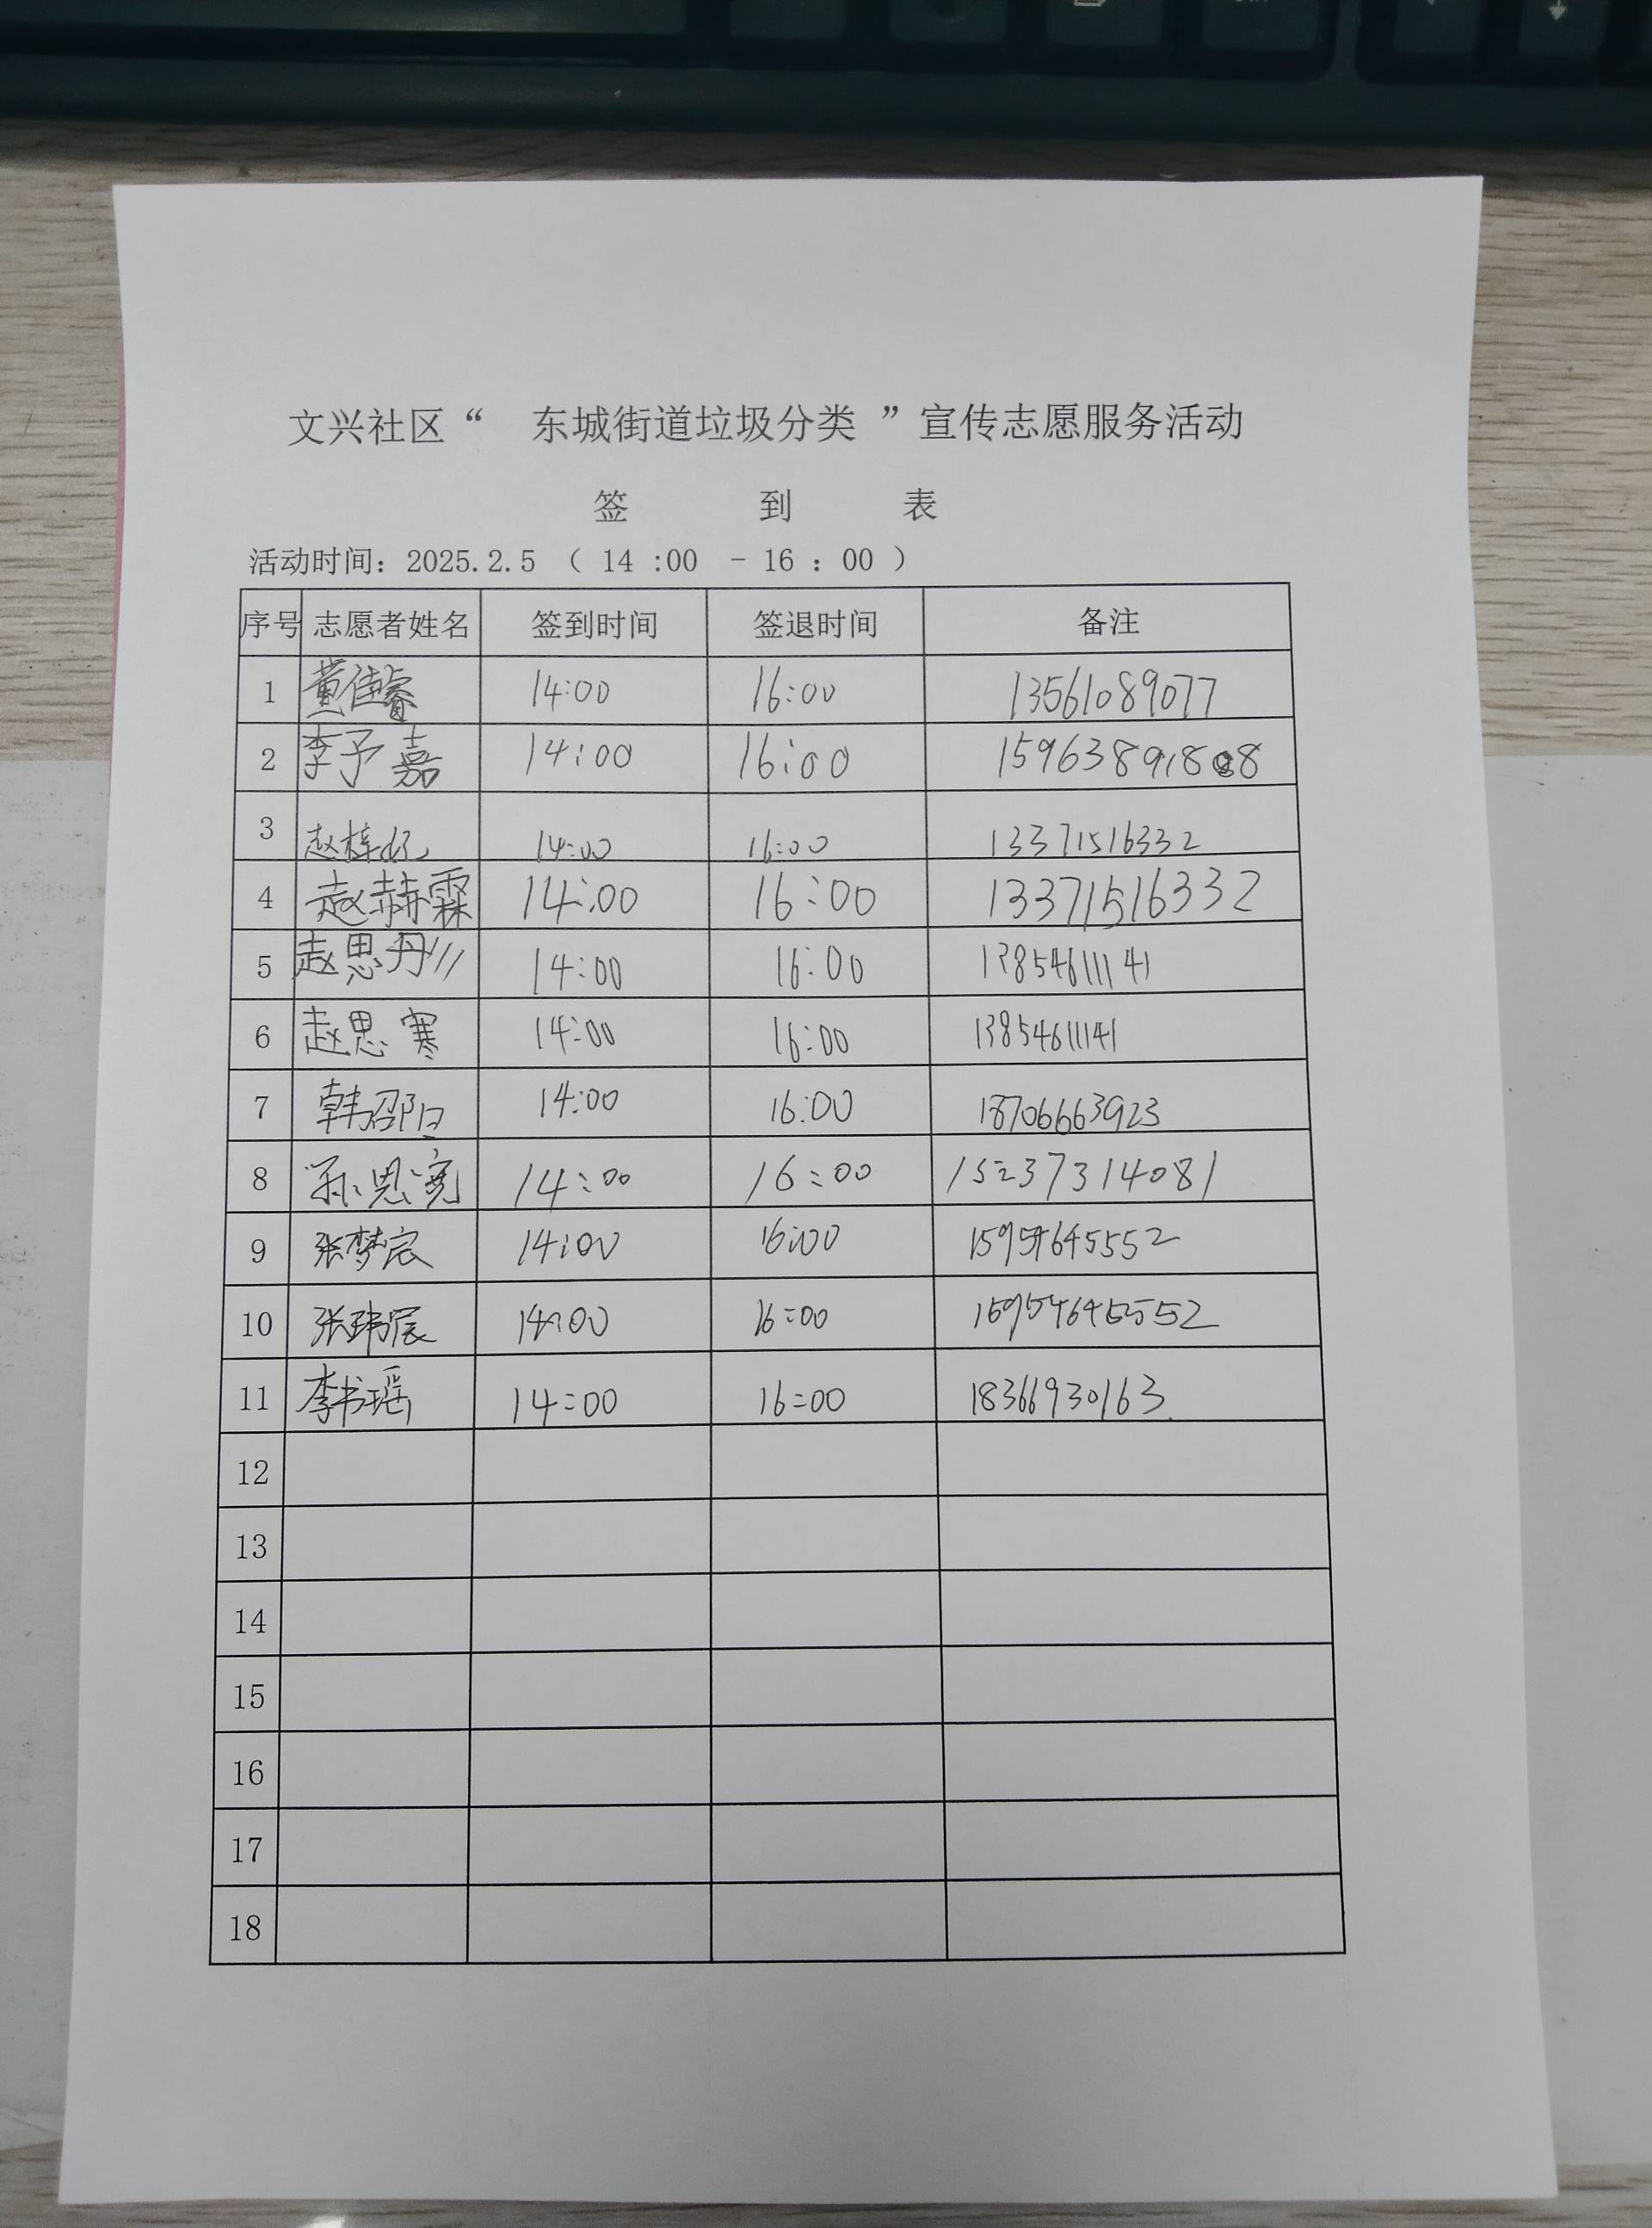 文兴社区“ 东城街道垃圾分类 ”宣传志愿服务活动
签 到 表
活动时间：2025.2.5 （ 14 :00 - 16 : 00 ）
序号 志愿者姓名 签到时间 签退时间 备注
1 黄佳睿 14:00 16:00 13561089077
2 李予嘉 14:00 16:00 1596389188
3 赵梓 14:00 16:00 13371516332
4 赵赫霖 14:00 16:00 13371516332
5 赵思丹 14:00 16:00 13854611141
6 赵思寒 14:00 16:00 13854611141
7 韩邵阳 14:00 16:00 18706663923
8 孙思 14:00 16:00 15237314081
9 张梦宸 14:00 16:00 15954645552
10 张玮宸 14:00 16:00 15954645552
11 李书瑶 14:00 16:00 18366930163
12
13
14
15
16
17
18